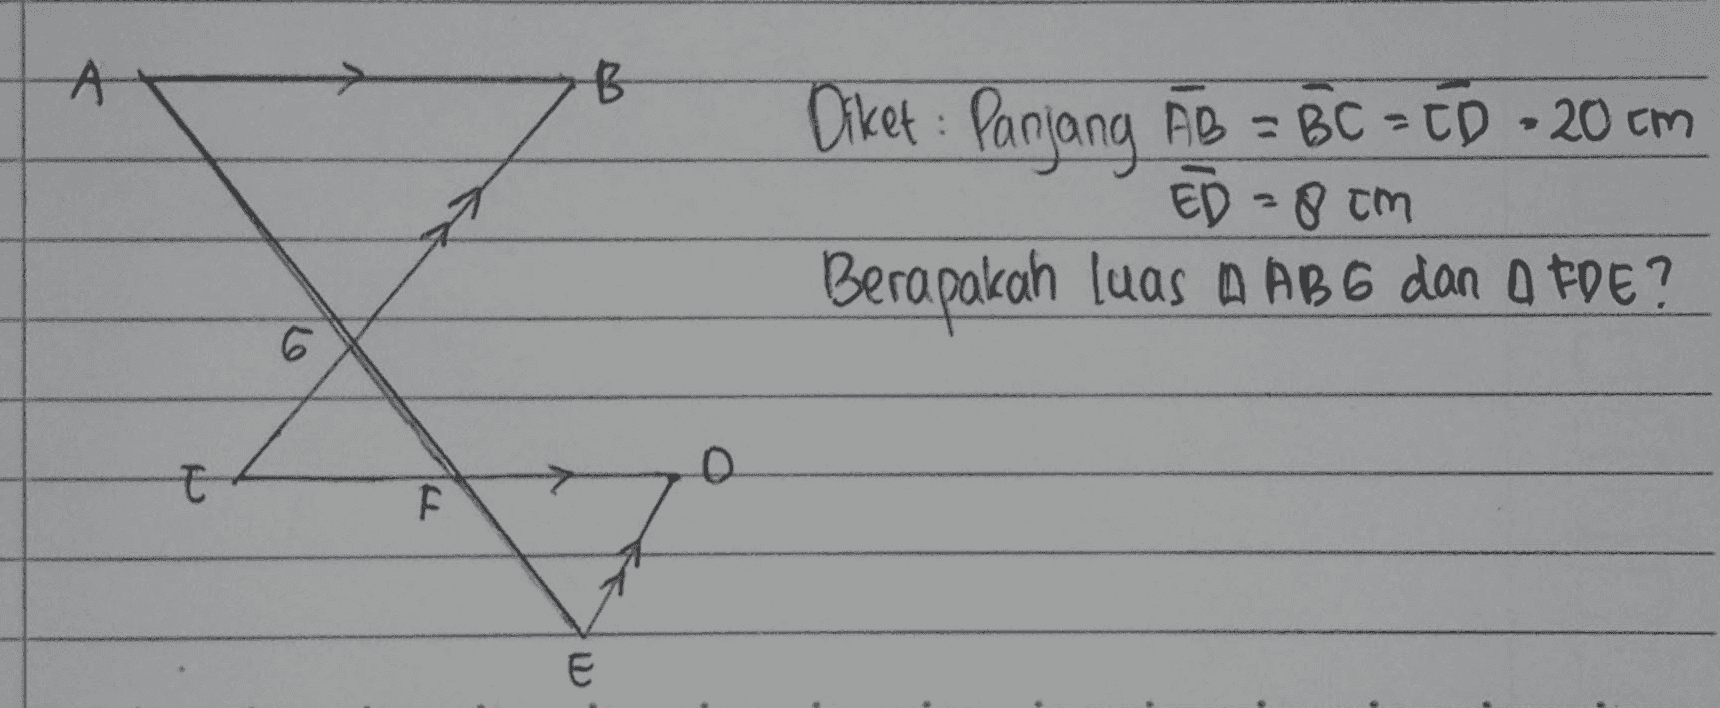 A
B
Diket : Panjang AB = BC = CD = 20 cm
ED = 8 cm
Berapakah luas △ ABG dan △ FDE?
G
C
F
D
E